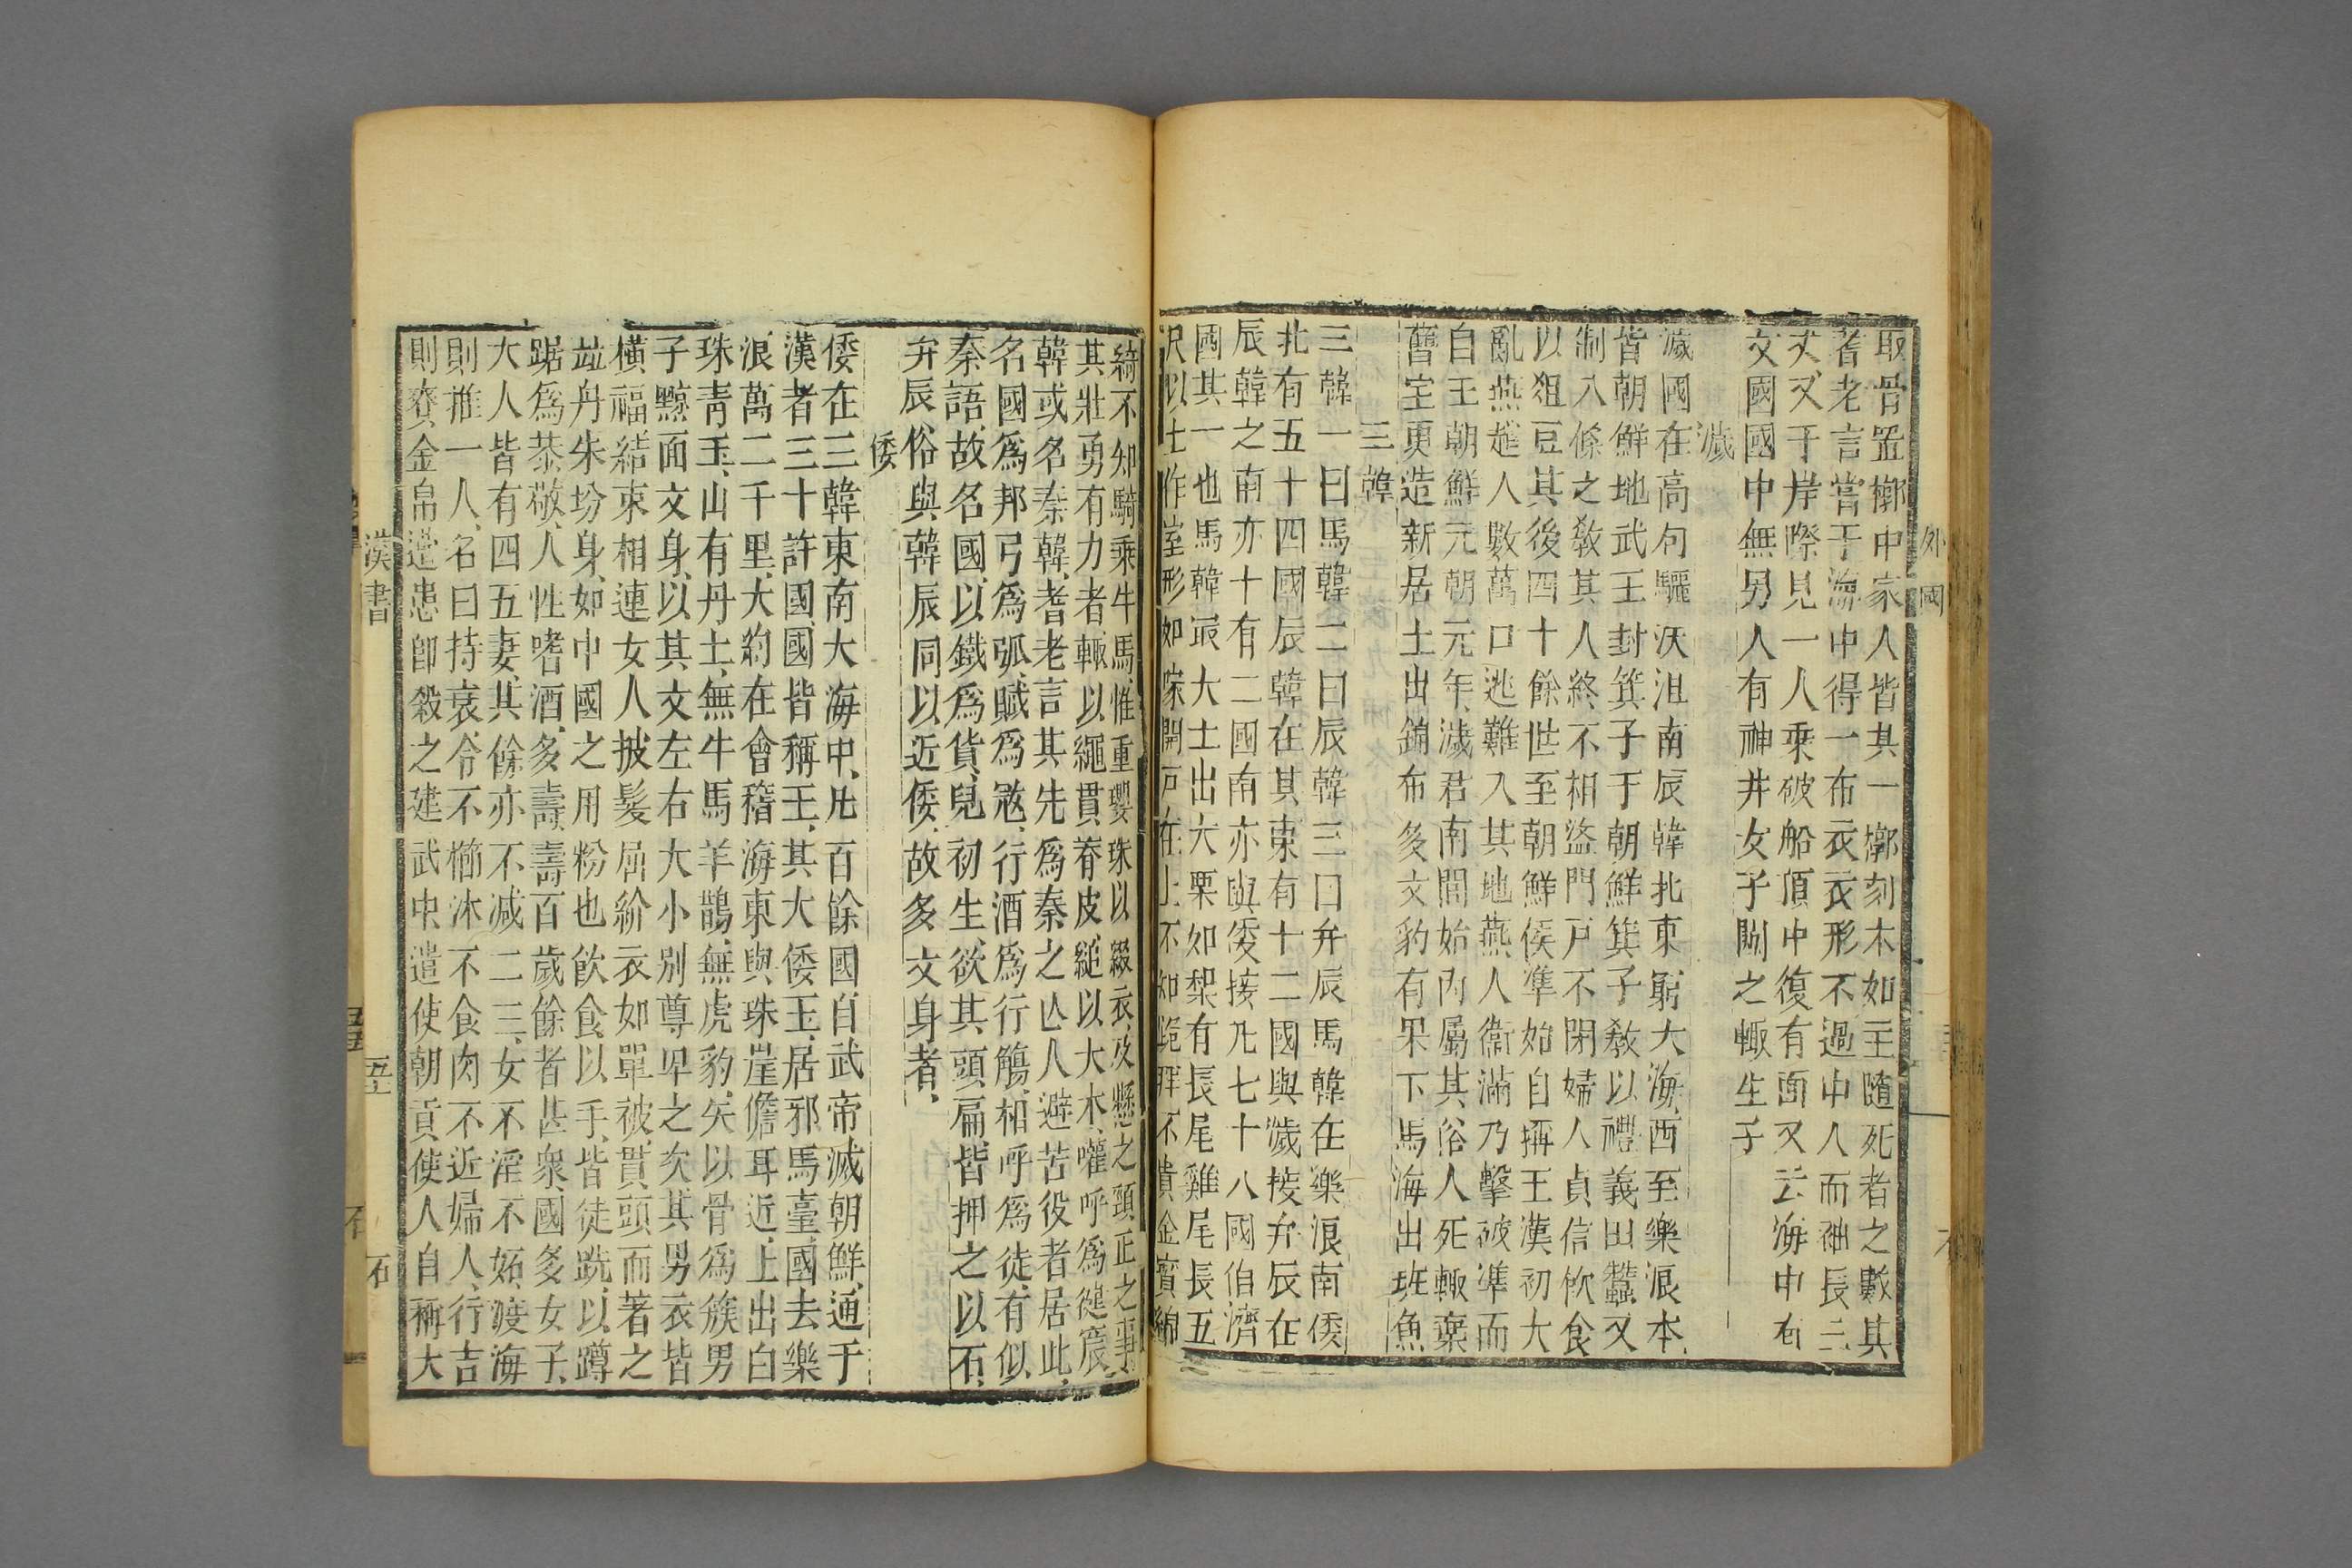 取骨置槨中家人皆共一槨刻木如主隨死者之數其
耆老言嘗于海中得一布衣衣形不過中人而袖長三
丈又于岸際見一人乘破船頂中復有面又云海中有
女國國中無男人有神井女子闚之輒生子
濊
濊國在高句驪沃沮南辰韓北東窮大海西至樂浪本
皆朝鮮地武王封箕子于朝鮮箕子敎以禮義田蠶又
制八條之敎其人終不相盜門戸不閉婦人貞信飲食
以俎豆其後四十餘世至朝鮮侯準始自稱王漢初大
亂燕趙人數萬口逃難入其地燕人衞滿乃擊破準而
自王朝鮮元朔元年濊君南閭始內屬其俗人死輒棄
舊室更造新居土出錦布多文豹有果下馬海出班魚
三韓
三韓一曰馬韓二曰辰韓三曰弁辰馬韓在樂浪南倭
北有五十四國辰韓在其東有十二國與濊接弁辰在
辰韓之南亦十有二國南亦與倭接凡七十八國伯濟
國其一也馬韓最大土出大栗如棃有長尾雞尾長五
尺以土作室形如冢開戸在上不知跪拜不貴金寶綿
綺不知騎乘牛馬惟重瓔珠以綴衣及懸之頸正之事
其壯勇有力者輒以繩貫脊皮縋以大木嚾呼爲健辰
韓或名秦韓耆老言其先爲秦之亾人避苦役者居此
名國爲邦弓爲弧賊爲寇行酒爲行觴相呼爲徒有似
秦語故名國以鐵爲貨兒初生欲其頭扁皆押之以石
弁辰俗與韓辰同以近倭故多文身者
倭
倭在三韓東南大海中凡百餘國自武帝滅朝鮮通于
漢者三十許國國皆稱王其大倭王居邪馬臺國去樂
浪萬二千里大約在會稽海東與珠崖儋耳近上出白
珠青玉山有丹土無牛馬羊鵲無虎豹矢以骨爲簇男
子黥面文身以其文左右大小別尊卑之次其男衣皆
橫福結束相連女人披髮屈紒衣如單被貫頭而著之
竝丹朱坋身如中國之用粉也飲食以手皆徒跣以蹲
踞爲恭敬人性嗜酒多壽壽百歲餘者甚衆國多女子
大人皆有四五妻其餘亦不减二三女不淫不妬渡海
則推一人名曰持衰令不櫛沐不食肉不近婦人行吉
則賚金帛遭患卽殺之建武中遣使朝貢使人自稱大
外國
漢書
五十
石